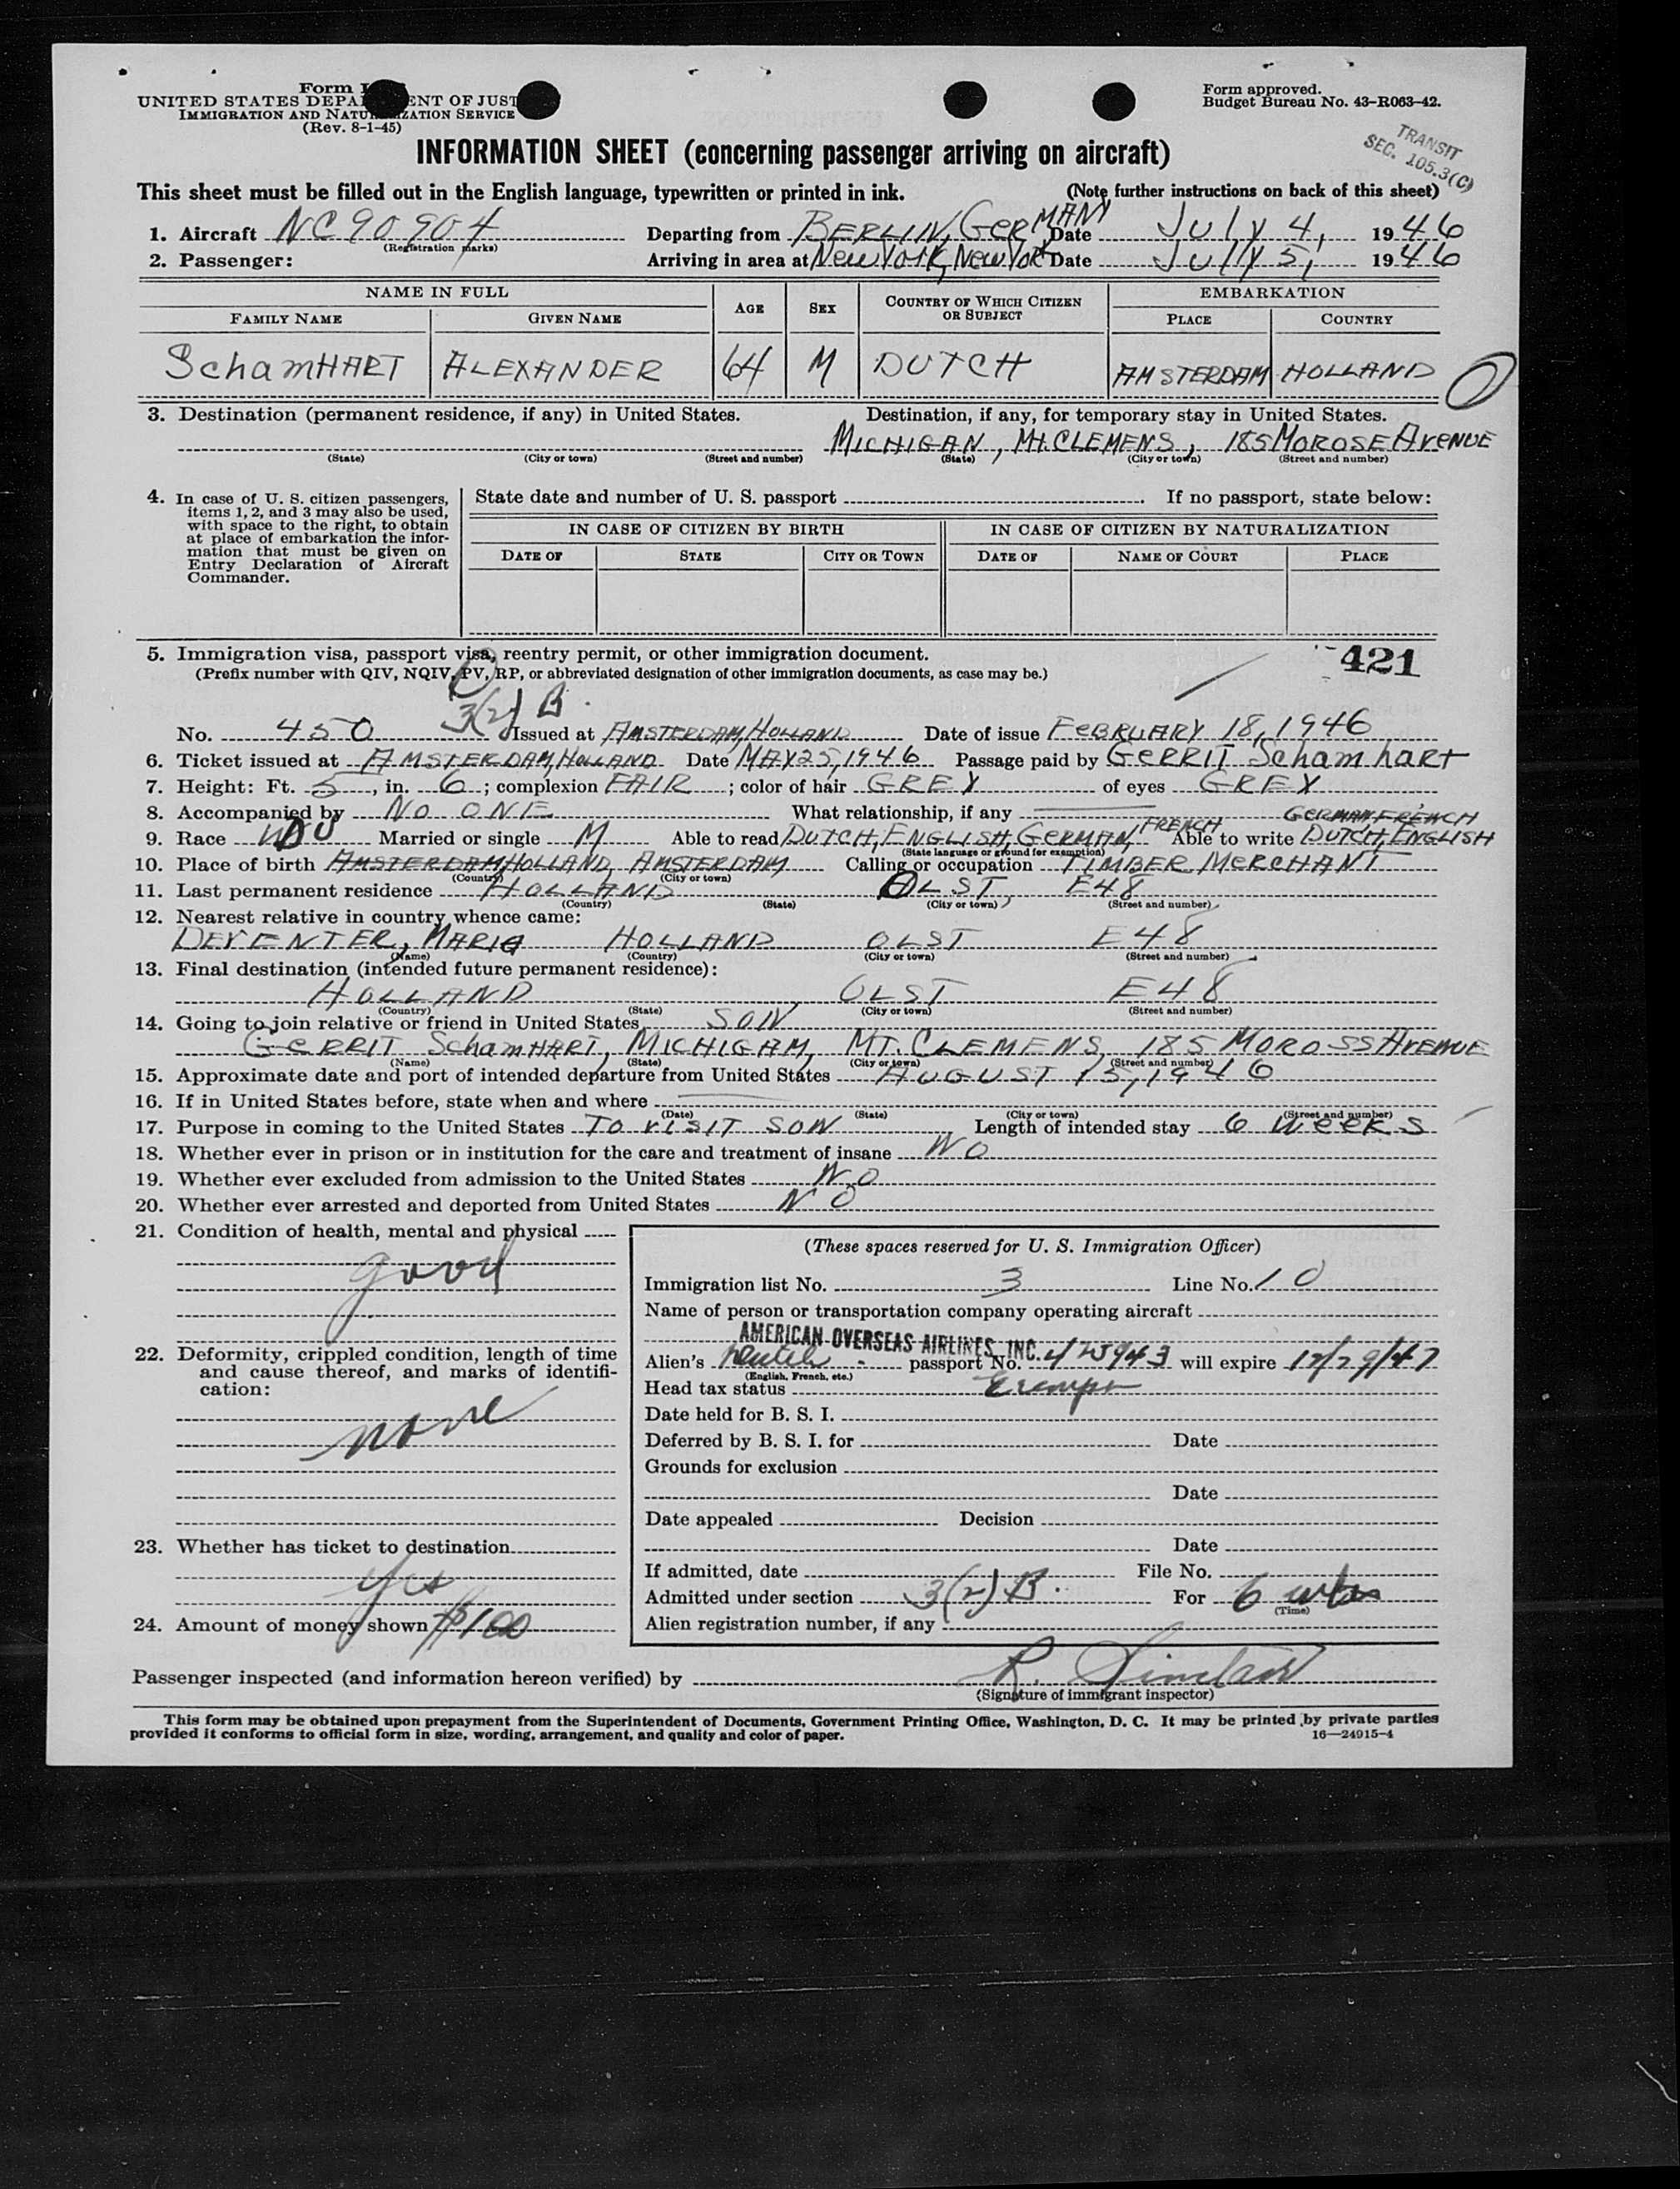 Form I
UNITED STATES DEPA ENT OF JUST
IMMIGRATION AND NATU IZATION SERVICE
(Rev. 8-1-45)
Form approved.
Budget Bureau No. 43-R063-42.
TRANSIT
SEC. 105.3(C)
INFORMATION SHEET (concerning passenger arriving on aircraft)
This sheet must be filled out in the English language, typewritten or printed in ink. (Note further instructions on back of this sheet)
1. Aircraft NC90904 Departing from BERLIN, GerMANY Date July 4, 1946
(Registration marks)
2. Passenger: Arriving in area at New York, New York Date July 5, 1946
NAME IN FULL AGE SEX COUNTRY OF WHICH CITIZEN OR SUBJECT EMBARKATION
FAMILY NAME GIVEN NAME PLACE COUNTRY
SchamHART ALEXANDER 64 M DUTCH AMSTERDAM HOLLAND
3. Destination (permanent residence, if any) in United States. Destination, if any, for temporary stay in United States.
MICHIGAN, Mt. CLEMENS, 185 MOROSE AVENUE
(State) (City or town) (Street and number) (State) (City or town) (Street and number)
4. In case of U. S. citizen passengers, items 1, 2, and 3 may also be used, with space to the right, to obtain at place of embarkation the information that must be given on Entry Declaration of Aircraft Commander.
State date and number of U. S. passport If no passport, state below:
IN CASE OF CITIZEN BY BIRTH IN CASE OF CITIZEN BY NATURALIZATION
DATE OF STATE CITY OR TOWN DATE OF NAME OF COURT PLACE
5. Immigration visa, passport visa, reentry permit, or other immigration document. 421
(Prefix number with QIV, NQIV, PV, RP, or abbreviated designation of other immigration documents, as case may be.)
3(2) B.
No. 450 Issued at AMSTERDAM, HOLLAND Date of issue FeBRUARY 18, 1946
6. Ticket issued at AMSTERDAM, HOLLAND Date MAY 25, 1946 Passage paid by GeRRIT Schamhart
7. Height: Ft. 5, in. 6; complexion FAIR; color of hair GREY of eyes GREY
8. Accompanied by NO ONE What relationship, if any
9. Race DU Married or single M Able to read DUTCH, ENGLISH, GERMAN, FRENCH Able to write DUTCH, ENGLISH GERMAN, FRENCH
(State language or ground for exemption)
10. Place of birth AMSTERDAM, HOLLAND, AMSTERDAM Calling or occupation TIMBER MERCHANT
(Country) (City or town)
11. Last permanent residence HOLLAND OLST E48
(Country) (State) (City or town) (Street and number)
12. Nearest relative in country whence came:
DEVENTER, MARIA HOLLAND OLST E48
(Name) (Country) (City or town) (Street and number)
13. Final destination (intended future permanent residence):
HOLLAND OLST E48
(Country) (State) (City or town) (Street and number)
14. Going to join relative or friend in United States SON
GERRIT SchamHART, MICHIGAM, MT. CLEMENS, 185 MOROSS AVENUE
(Name) (State) (City or town) (Street and number)
15. Approximate date and port of intended departure from United States AUGUST 15, 1946
16. If in United States before, state when and where
(Date) (State) (City or town) (Street and number)
17. Purpose in coming to the United States TO VISIT SON Length of intended stay 6 weeks
18. Whether ever in prison or in institution for the care and treatment of insane NO
19. Whether ever excluded from admission to the United States NO
20. Whether ever arrested and deported from United States NO
21. Condition of health, mental and physical
good
22. Deformity, crippled condition, length of time and cause thereof, and marks of identification:
none
23. Whether has ticket to destination
yes
24. Amount of money shown $100
(These spaces reserved for U. S. Immigration Officer)
Immigration list No. 3 Line No. 10
Name of person or transportation company operating aircraft
AMERICAN OVERSEAS AIRLINES, INC.
Alien's passport No. will expire 12/29/47
(English, French, etc.)
Head tax status Exempt
Date held for B. S. I.
Deferred by B. S. I. for Date
Grounds for exclusion
Date
Date appealed Decision
Date
If admitted, date File No.
Admitted under section 3(2) B. For 6 wks
(Time)
Alien registration number, if any
Passenger inspected (and information hereon verified) by R. Sinclair
(Signature of immigrant inspector)
This form may be obtained upon prepayment from the Superintendent of Documents, Government Printing Office, Washington, D. C. It may be printed by private parties
provided it conforms to official form in size, wording, arrangement, and quality and color of paper. 16—24915-4